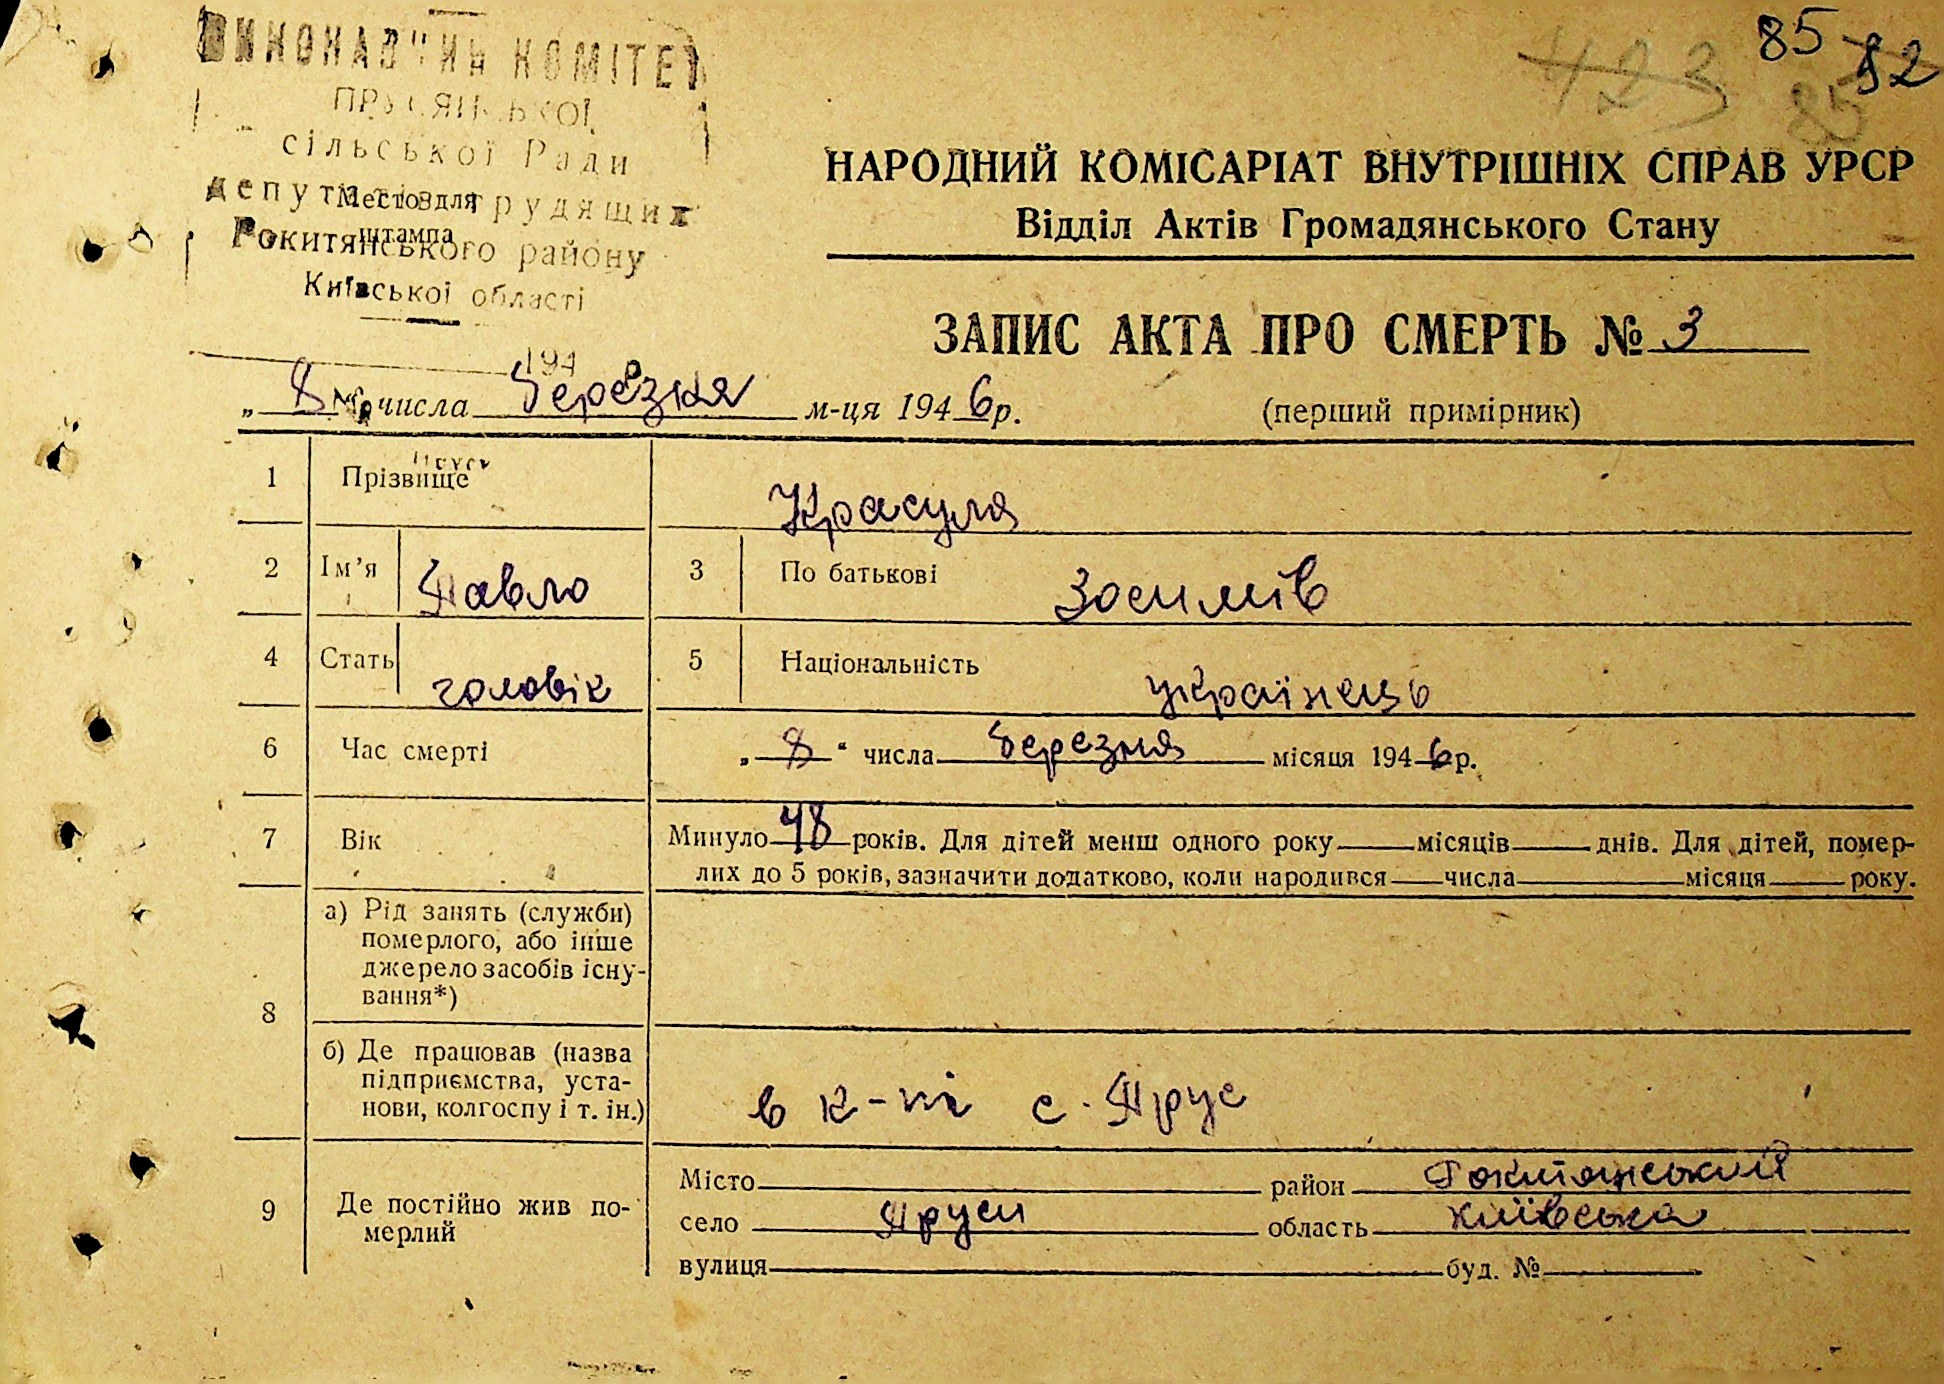 ВИКОНАВЧИЙ КОМІТЕТ
ПРУСЯНСЬКОЇ
сільської Ради
депутатів трудящих
Место для
штампа
Рокитянського району
Київської області
194 р
№
85 82
423 85
НАРОДНИЙ КОМІСАРІАТ ВНУТРІШНІХ СПРАВ УРСР
Відділ Актів Громадянського Стану
ЗАПИС АКТА ПРО СМЕРТЬ № 3
„ 8 " числа березня м-ця 1946 р.
(перший примірник)
1 Прізвище Красуля
2 Ім'я Павло 3 По батькові Зосимів
4 Стать чоловік 5 Національність українець
6 Час смерті „ 8 “ числа березня місяця 1946 р.
7 Вік Минуло 48 років. Для дітей менш одного року місяців днів. Для дітей, помер-
лих до 5 років, зазначити додатково, коли народився числа місяця року.
8 а) Рід занять (служби)
померлого, або інше
джерело засобів існу-
вання*)
б) Де працював (назва
підприємства, уста-
нови, колгоспу і т. ін.)
в к-пі с. Прус
9 Де постійно жив по-
мерлий
Місто район Рокитянський
село Пруси область київська
вулиця буд. №